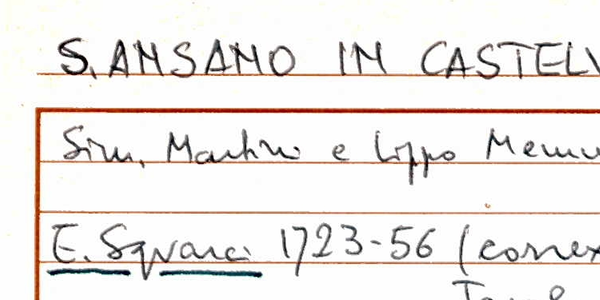 S. ANSANO IN CASTELV
Sim. Martini e Lippo Memm
E. Squarci 1723-56 (connex